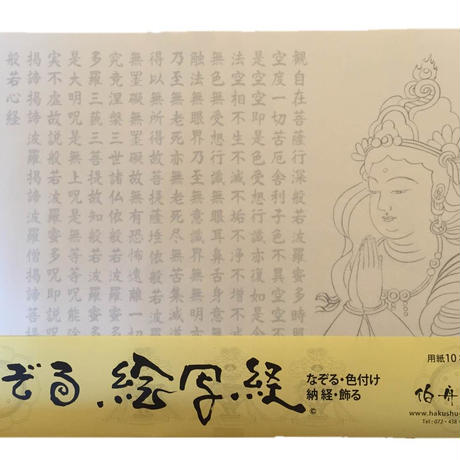 観自在菩薩行深般若波羅蜜多時
空度一切苦厄舎利子色不異空空
是空空即是色受想行識亦復如是
法空相不生不滅不垢不浄不増不
無色無受想行識無眼耳鼻舌身意
触法無眼界乃至無意識界無無明
乃至無老死亦無老死尽無苦集滅道
得以無所得故菩提薩埵依般若波羅
無罣礙無罣礙故無有恐怖遠離一切
究竟涅槃三世諸仏依般若波羅蜜多
多羅三藐三菩提故知般若波羅蜜多
是大明呪是無上呪是無等等呪能除
実不虚故説般若波羅蜜多呪即説呪
掲諦掲諦波羅掲諦波羅僧掲諦菩提
般若心経
ぞる 絵写経
なぞる・色付け
納経・飾る
©
用紙10
伯舟
www.hakushu-
Tel : 072・438